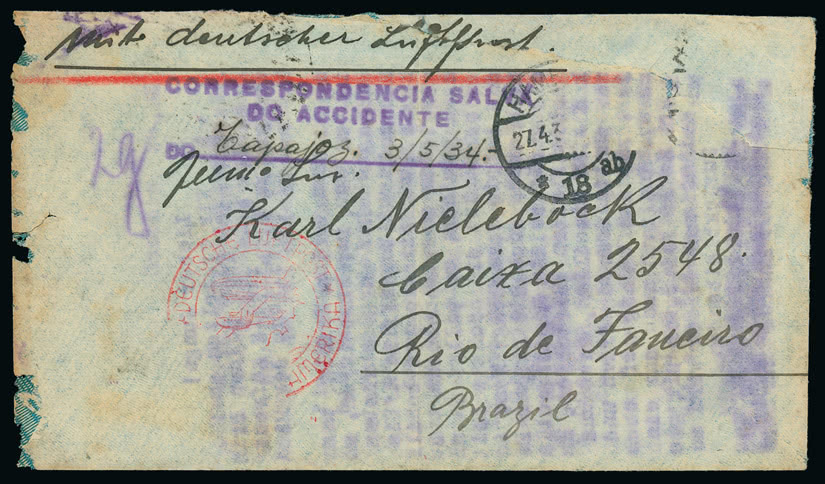 mit deutscher Luftpost.
CORRESPONDENCIA SAL
DO ACCIDENTE
DO Tapajoz. 3/5/34.-
2g
HAM
27.4.3
* 18 ab
Karl Nielebock
Caixa 2548.
Rio de Janeiro
Brazil
DEUTSCHE LUFTPOST *
AMERIKA